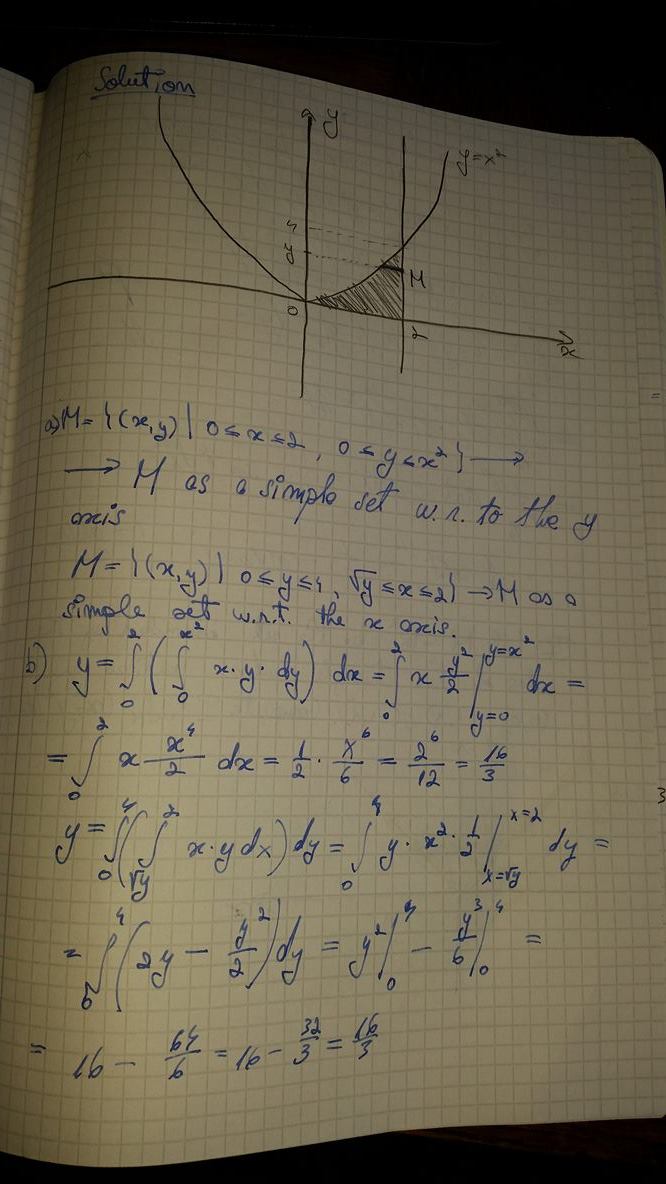 Solution
y
y=x²
4
y
M
0
2
x
a) M = {(x,y) | 0 ≤ x ≤ 2, 0 ≤ y ≤ x²} →
→ M as a simple set w.r. to the y
axis
M = {(x,y) | 0 ≤ y ≤ 4, √y ≤ x ≤ 2} → M as a
simple set w.r.t. the x axis.
b) y = ∫₀² (∫₀^{x²} x·y·dy) dx = ∫₀² x y²/2 |_{y=0}^{y=x²} dx =
= ∫₀² x x⁴/2 dx = 1/2 · x⁶/6 = 2⁶/12 = 16/3
y = ∫₀⁴ (∫_{√y}² x·y dx) dy = ∫₀⁴ y·x²·1/2 |_{x=√y}^{x=2} dy =
= ∫₀⁴ (2y − y²/2) dy = y² |₀⁴ − y³/6 |₀⁴ =
= 16 − 64/6 = 16 − 32/3 = 16/3